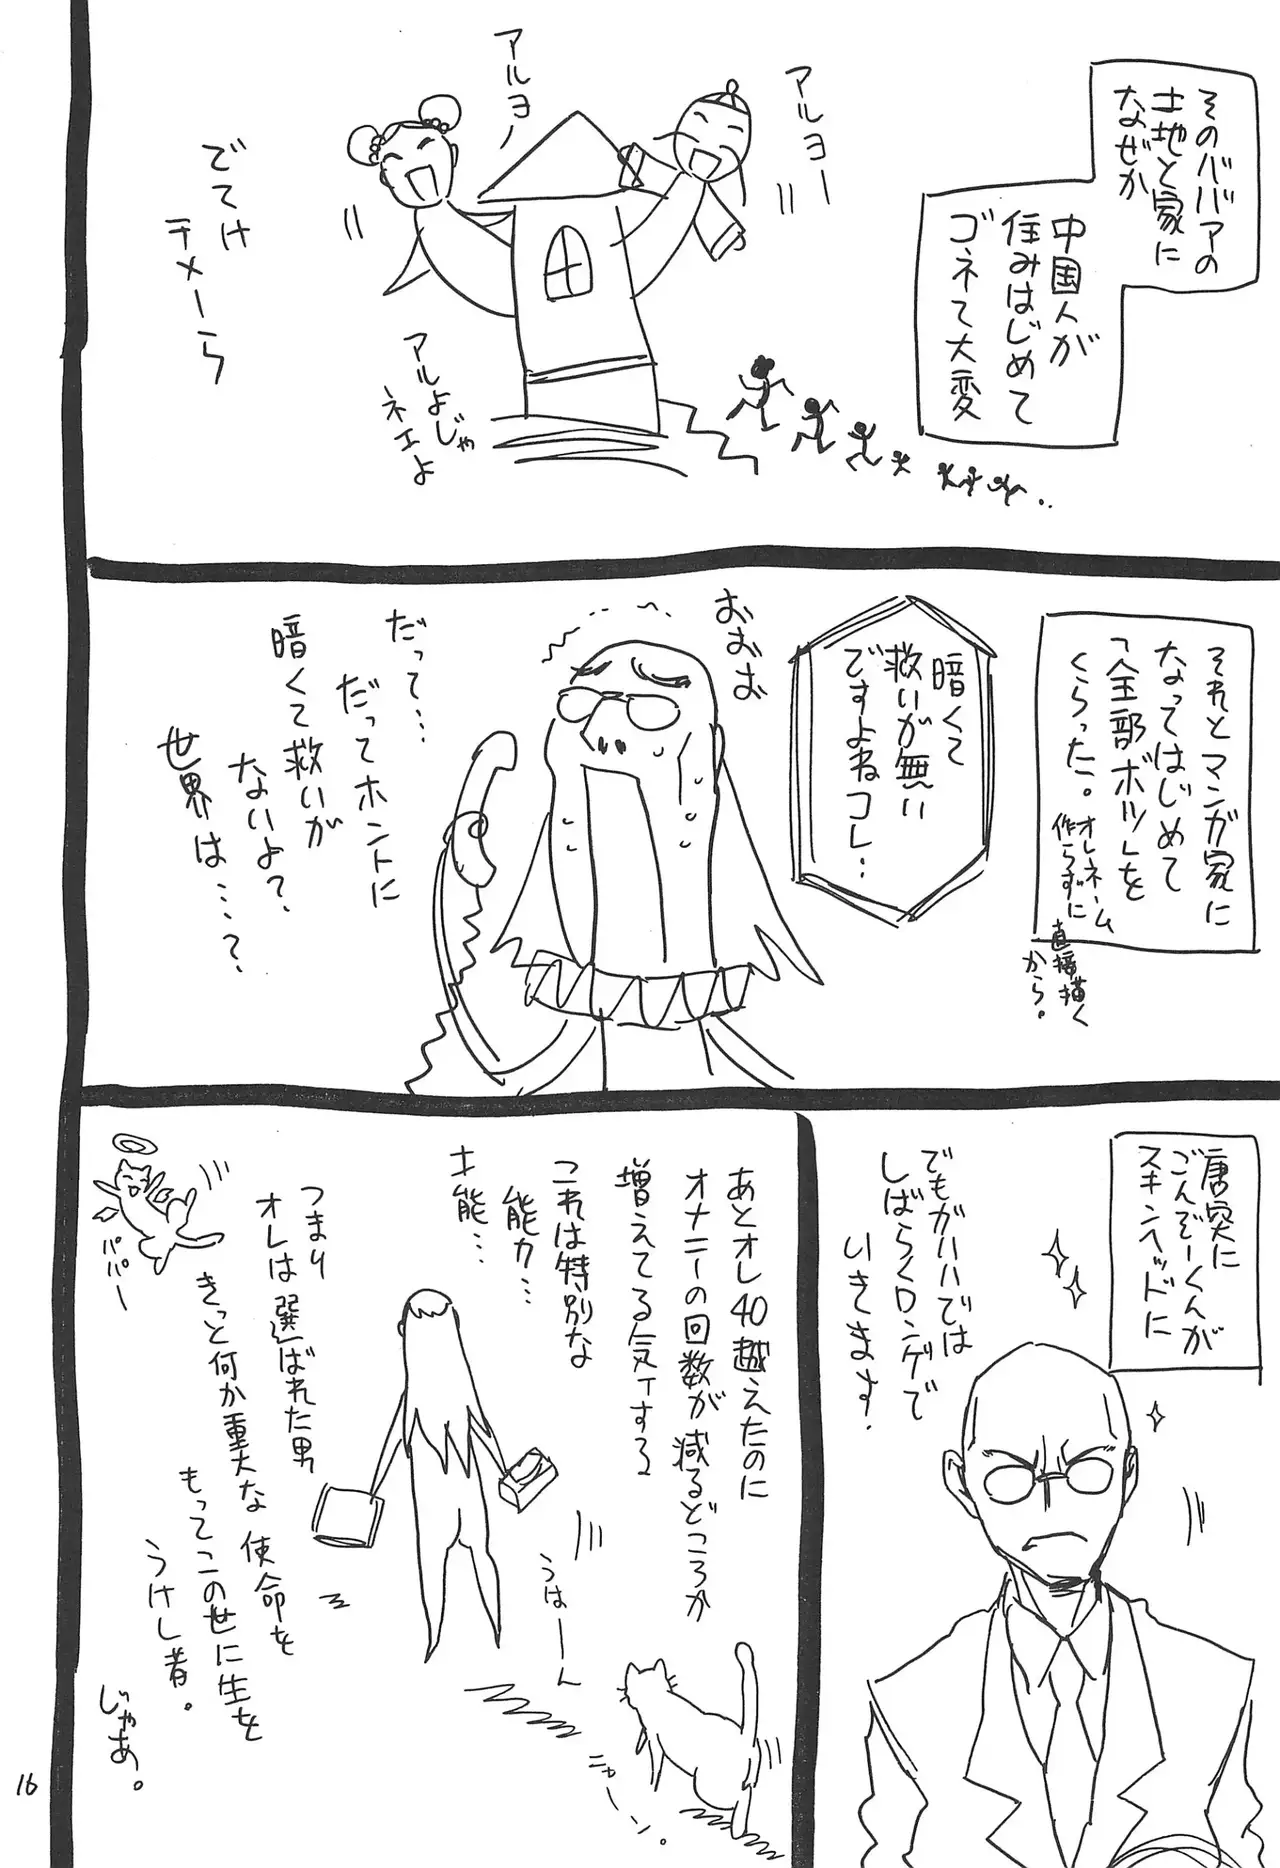 そのババアの
土地と家に
なぜか
中国人が
住みはじめて
ゴネて大変
アルヨー
アルヨー
でてけ
テメーら
アルよじゃ
ネエよ
それとマンガ家に
なってはじめて
「全部ボツ」を
くらった。
オレネーム
作らずに
直接描く
から。
暗くて
救いが無い
ですよねコレ…
おおお
だって…
だってホントに
暗くて救いが
ないよ?
世界は…?
唐突に
ごんぞーくんが
スキンヘッドに
でもがいいでは
しばらくロンゲで
いきます!
あとオレ40越えたのに
オナニーの回数が減るどころか
増えてる気ィする
これは特別な
能力…
才能…
つまり
オレは選ばれた男
きっと何か重大な使命を
もってこの世に生を
うけし者。
じゃあ。
パパー
うはーーん
ニャーン。
16